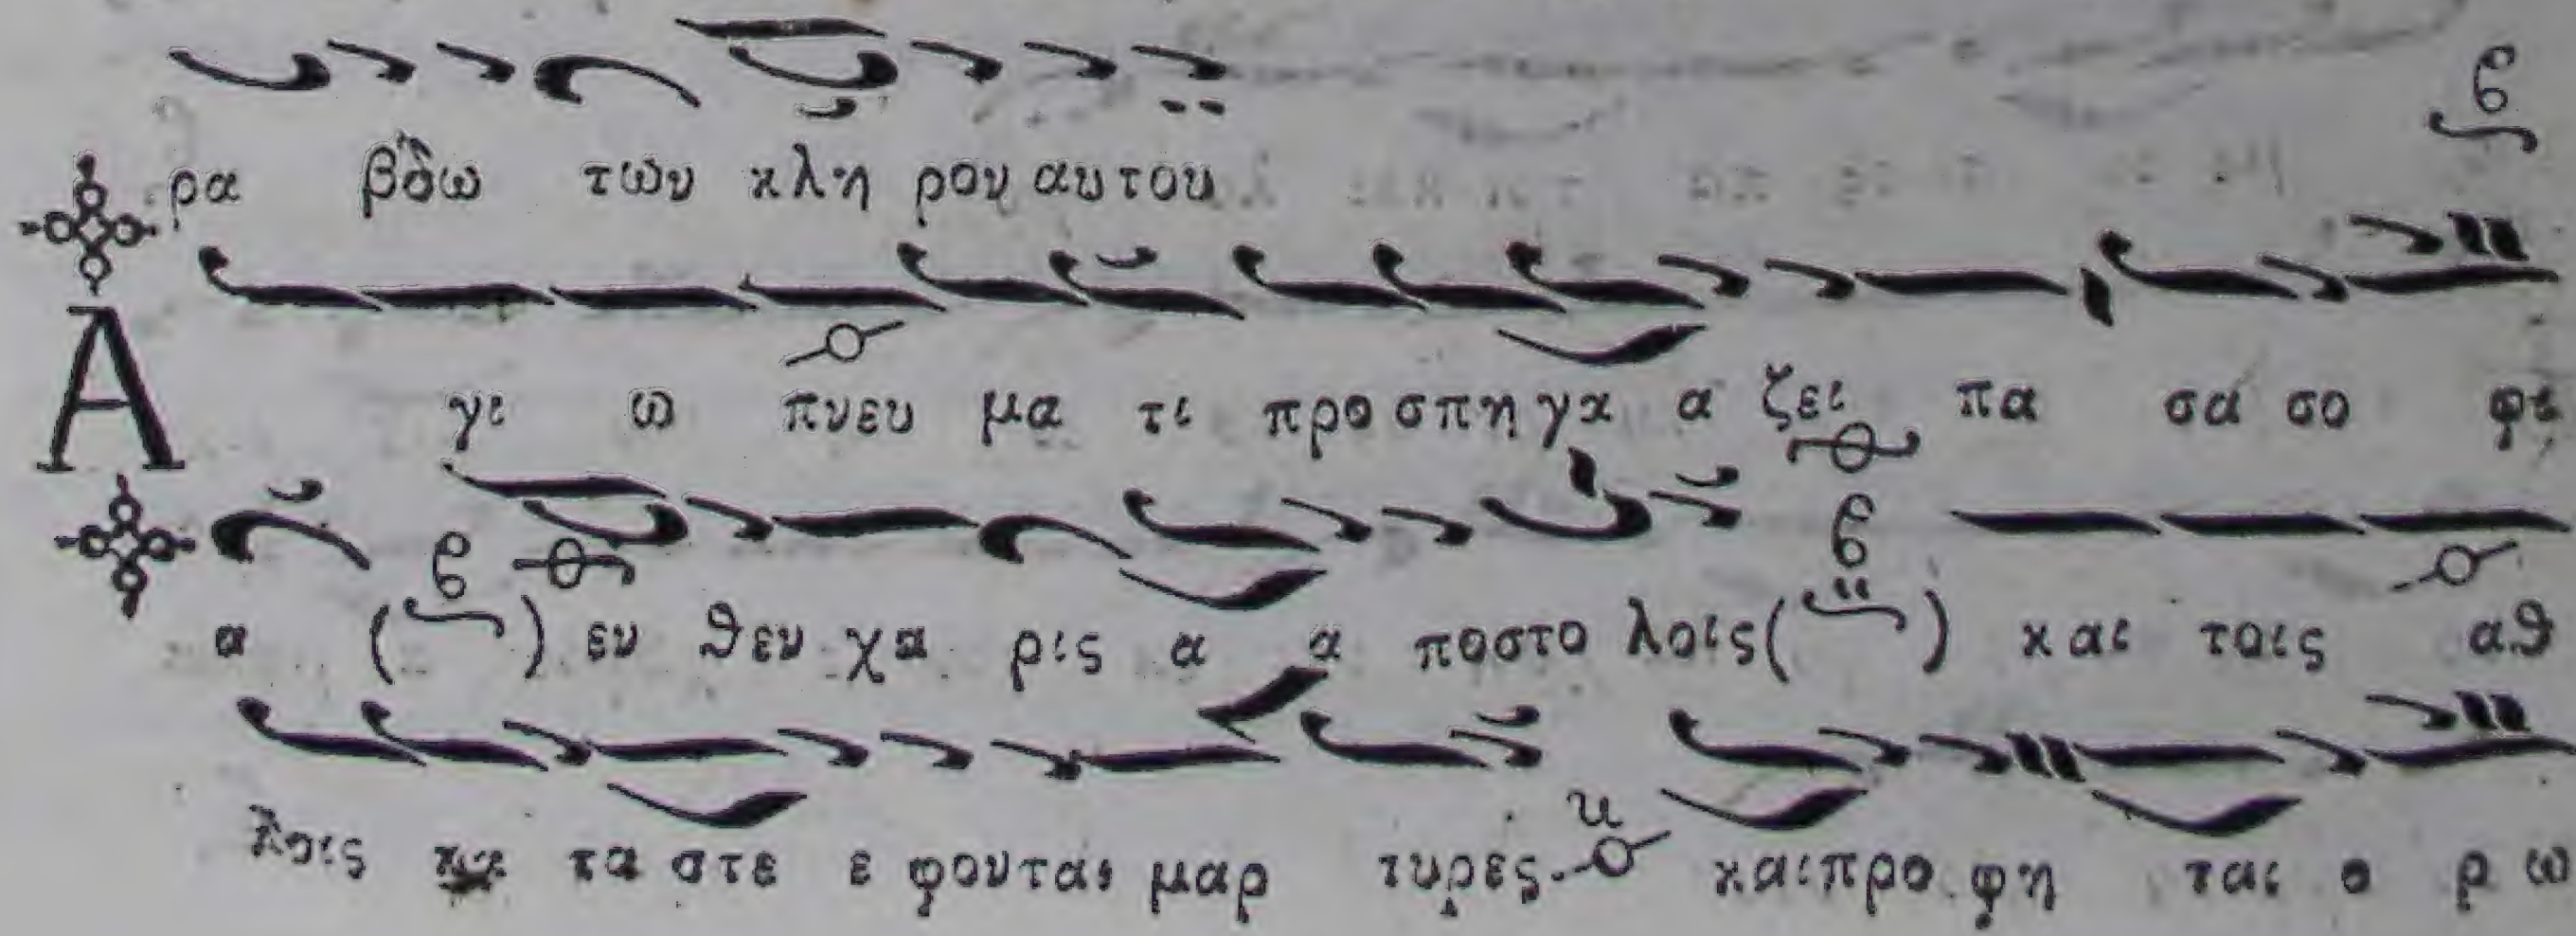 ρα βδω των κλη ρου αυ του
Α γι ω πνευ μα τι προ σπη γα α ζει πα σα σο φι
α ( ) εν θεν χα ρις α α ποστο λοις ( ) και τοις αθ
λοις κα τα στε ε φονται μαρ τυρες και προ φη ται ο ρ ω